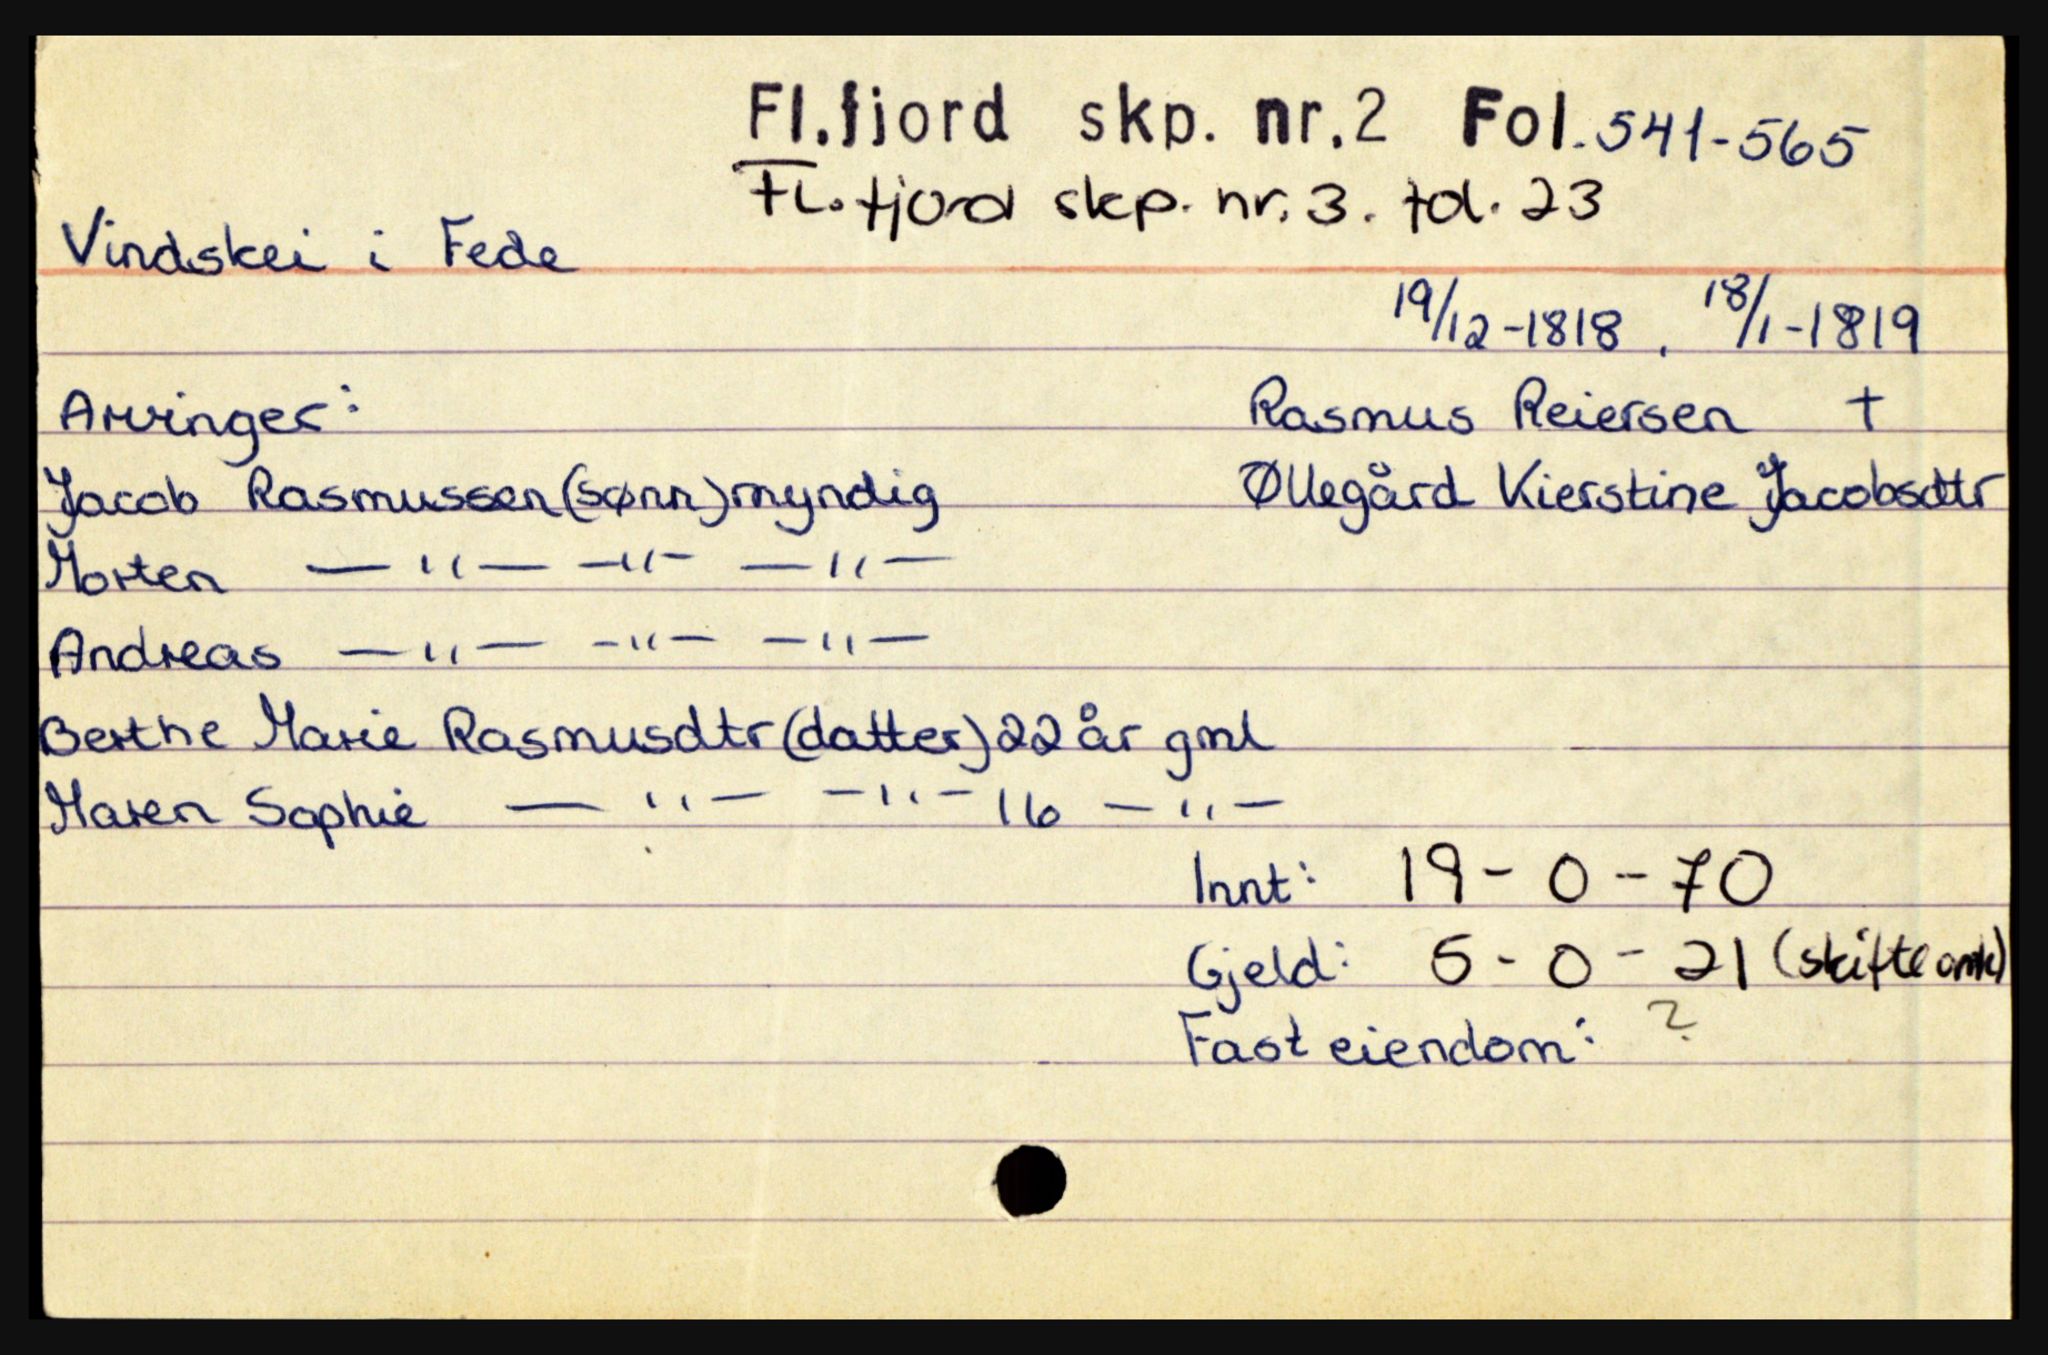 Fl.fjord skp. nr.2 Fol. 541-565
Fl.fjord skp. nr. 3. fol. 23
Vindskei i Fede
19/12-1818, 18/1-1819
Arvinger: Rasmus Reiersen †
Jacob Rasmussen (sønn) myndig Øllegård Kierstine Jacobsdtr
Morten —"— —"— —"—
Andreas —"— —"— —"—
Berthe Marie Rasmusdtr (datter) 22 år gml
Maren Sophie —"— —"— 16 —"—
Innt: 19-0-70
Gjeld: 5-0-21 (skifteomk)
Fast eiendom: ?